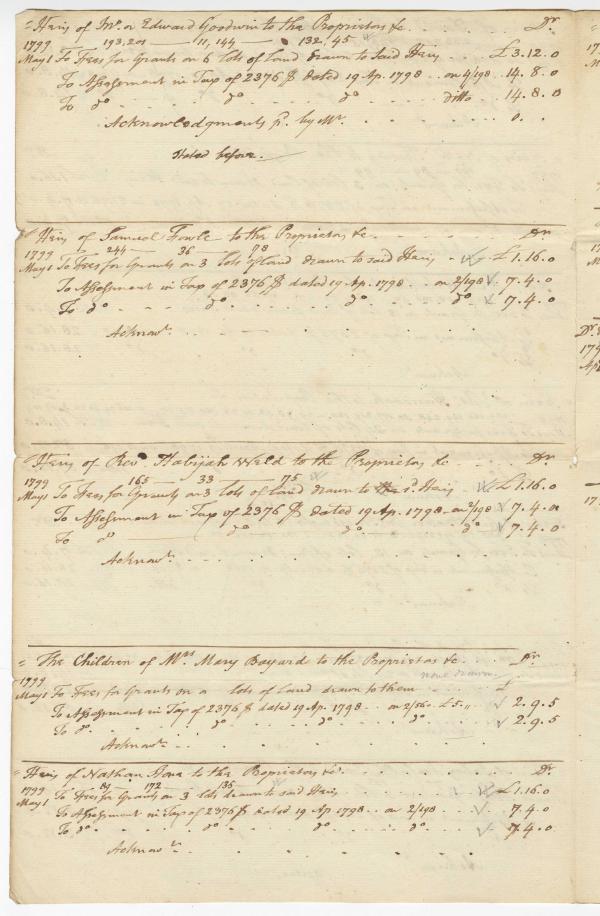 Heirs of Jno. & Edward Goodwin to the Proprietors &c Dr.
1799 193,201 — 11,144 — 132,45
May 1 To Fees for Grants on 6 Lots of Land drawn to Said Heirs £3.12.0
To Assessment in Tax of 2376 $ dated 19 Ap. 1798 on 4/198 14.8.0
To do do do ditto 14.8.0
Acknowledgments pr. by Mr. 0.
Noted before.
Heirs of Samuel Fowle to the Proprietors &c Dr.
1799 244 — 36 78
May 1 To Fees for Grants on 3 Lots of Land drawn to said Heirs £1.16.0
To Assessment in Tax of 2376 $ dated 19 Ap. 1798 on 2/198 7.4.0
To do do do do 7.4.0
Acknow.
Heirs of Revd. Habijah Weld to the Proprietors &c Dr.
1799 165 — 33 — 75
May 1 To Fees for Grants on 3 Lots of Land drawn to sd. Heirs £1.16.0
To Assessment in Tax of 2376 $ dated 19 Ap. 1798 on 2/198 7.4.0
To do do do do 7.4.0
Acknow.
The Children of Mrs Mary Bayard to the Proprietors &c Dr.
none drawn.
1799
May 1 To Fees for Grants on a lots of Land drawn to them £
To Assessment in Tax of 2376 $ dated 19 Ap. 1798 on 2.9.5
To do do do do 2.9.5
Acknow.
Heirs of Nathan to the Proprietors &c. Dr.
1799 89 172 135
May 1 To Fees for Grants on 3 lots drawn to said Heirs £1.16.0
To Assessment in Tax of 2376 $ dated 19 Ap 1798 on 2/198 7.4.0
To do do do do 7.4.0
Acknow.